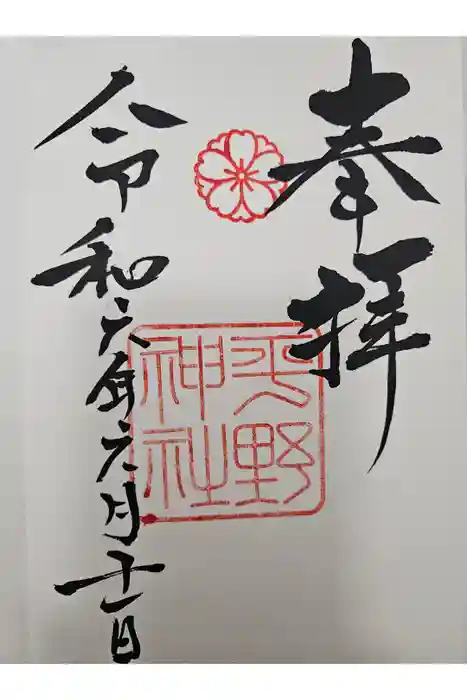 奉拝
平野
神社
令和六年六月十一日